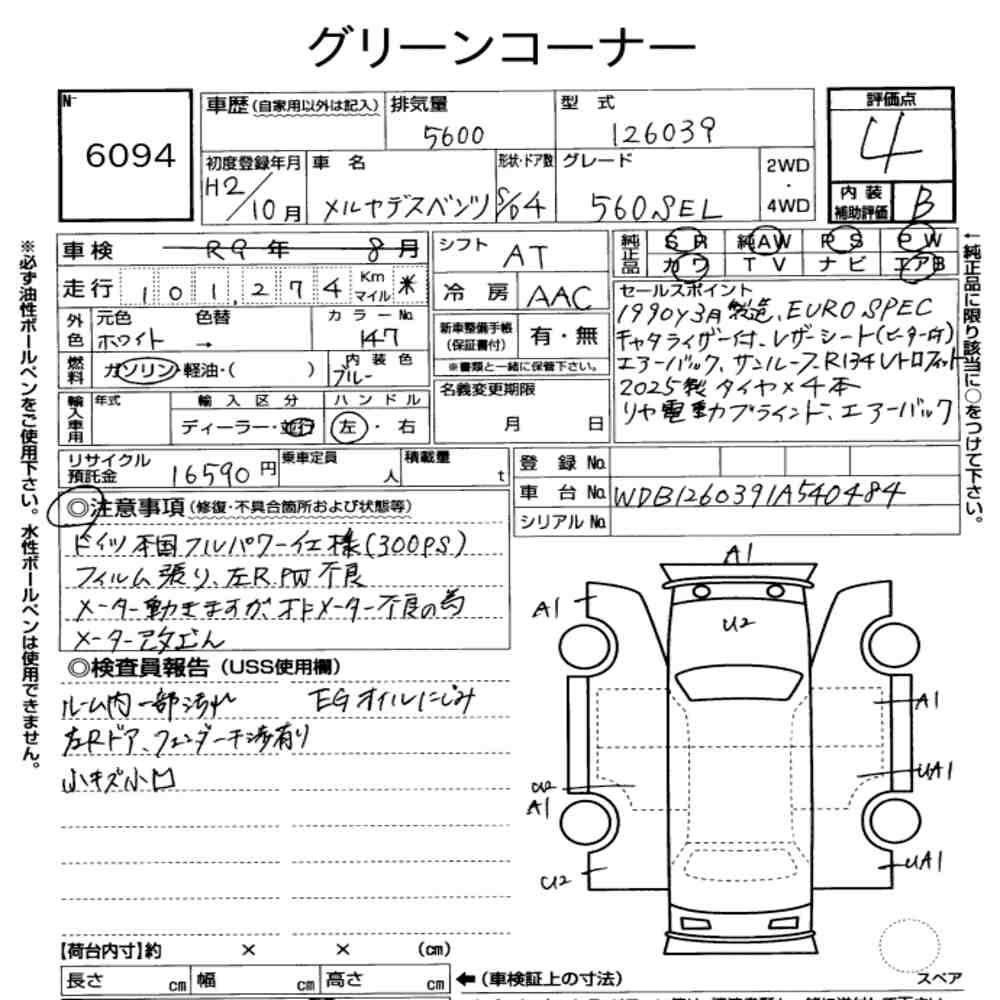 グリーンコーナー
No
6094
車歴(自家用以外は記入)
排気量
5600
型 式
126039
評価点
4
初度登録年月
H2/10月
車 名
メルセデスベンツ
形状・ドア数
S/D4
グレード
560SEL
2WD
・
4WD
内装
補助評価
B
車検 R9年 8月
シフト
AT
純正品
SR 純AW PS PW
カワ TV ナビ エアB
走行 101,274 Km マイル *
冷房
AAC
セールスポイント
1990y3月製造、EURO SPEC
キャタライザー付、レザーシート(ヒーター付)
エアーバック、サンルーフ、R134レトロフィット
2025製タイヤ×4本
リヤ電動カブラインド、エアーバック
外色
元色
ホワイト →
色替
カラーNo.
147
新車整備手帳
(保証書付)
有・無
※書類と一緒に保管下さい。
燃料
ガソリン・軽油・( )
内装色
ブルー
名義変更期限
月 日
輸入車用
年式
輸入区分
ディーラー・並行
ハンドル
左・右
リサイクル
預託金
16590円
乗車定員
人
積載量
t
登録No.
車台No.
WDB1260391A540484
シリアルNo.
◎注意事項(修復・不具合箇所および状態等)
ドイツ本国フルパワー仕様(300PS)
フィルム張り、左R.PW不良
メーター動きますが、オドメーター不良の為
メーター改ざん
◎検査員報告(USS使用欄)
ルーム内一部汚れ EGオイルにじみ
左Rドア、フェンダー干渉有り
小キズ小凹
A1
A1
U2
A1
U2
A1
UA1
U2
UA1
スペア
【荷台内寸】約 × × (cm)
長さ cm 幅 cm 高さ cm
←(車検証上の寸法)
※必ず油性ボールペンをご使用下さい。水性ボールペンは使用できません。
←純正品に限り該当に○をつけて下さい。